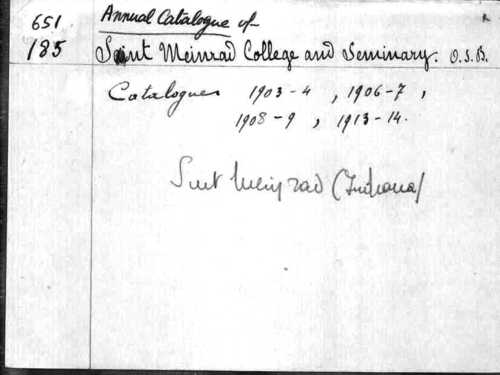 651
185
Annual Catalogue of
Saint Meinrad College and Seminary. O.S.B.
Catalogues 1903-4, 1906-7,
1908-9, 1913-14.
Meinrad (Indiana)